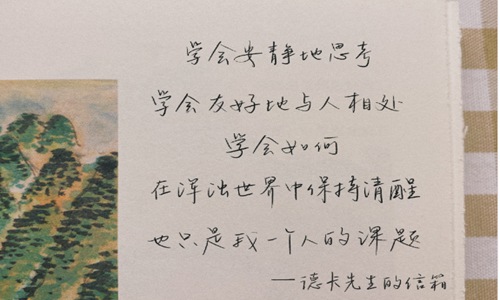 学会安静地思考
学会友好地与人相处
学会如何
在浑浊世界中保持清醒
也只是我一个人的课题
——德卡先生的信箱